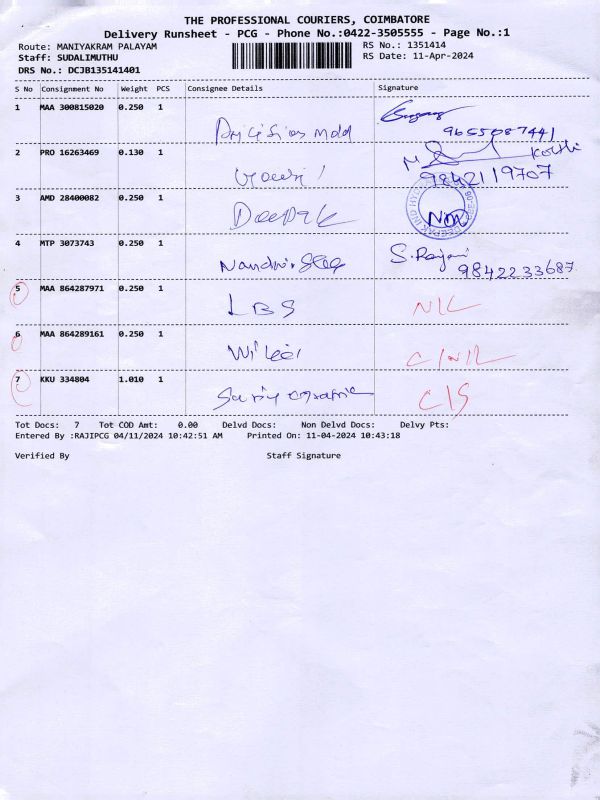 THE PROFESSIONAL COURIERS, COIMBATORE
Delivery Runsheet - PCG - Phone No.:0422-3505555 - Page No.:1
Route: MANIYAKRAM PALAYAM RS No.: 1351414
Staff: SUDALIMUTHU RS Date: 11-Apr-2024
DRS No.: DCJB135141401
S No Consignment No Weight PCS Consignee Details Signature
1 MAA 300815020 0.250 1
9655087441
2 PRO 16263469 0.130 1
9842119707
3 AMD 28400082 0.250 1
Deepak
4 MTP 3073743 0.250 1
S. Rajani
9842233687
5 MAA 864287971 0.250 1
LBS
6 MAA 864289161 0.250 1
7 KKU 334804 1.010 1
Tot Docs: 7 Tot COD Amt: 0.00 Delvd Docs: Non Delvd Docs: Delvy Pts:
Entered By :RAJIPCG 04/11/2024 10:42:51 AM Printed On: 11-04-2024 10:43:18
Verified By Staff Signature